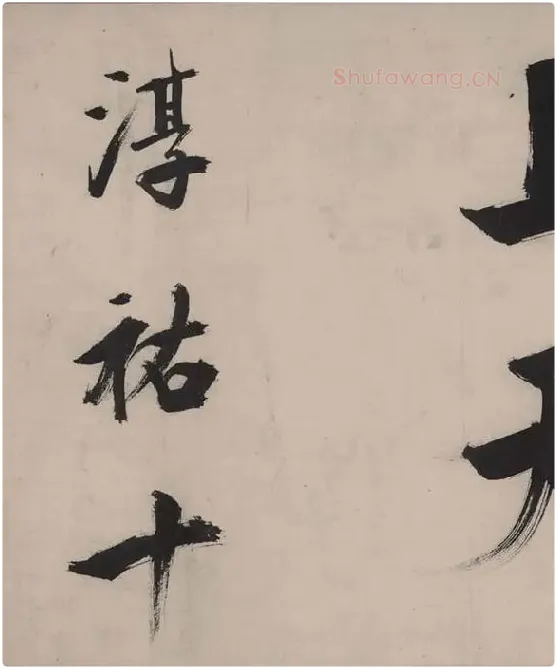 Shufawang.CN
上天
淳祐十